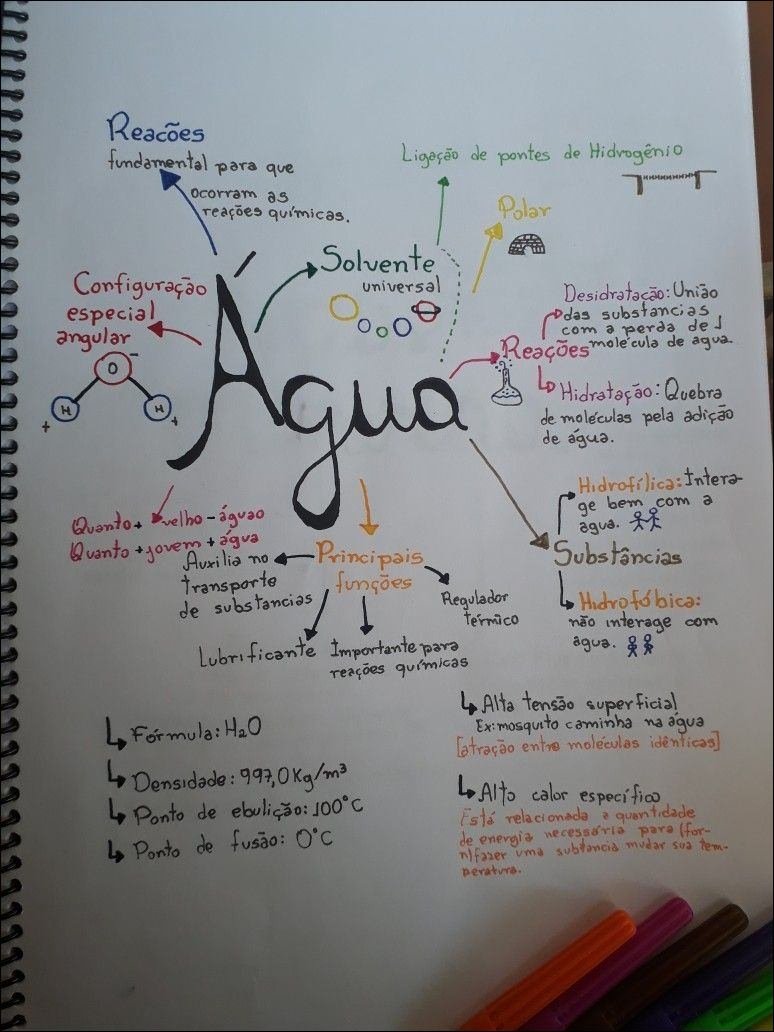 Reacões
fundamental para que
ocorram as
reações químicas.
Ligação de pontes de Hidrogênio
Polar
Solvente
universal
Configuração
especial
angular
O
-
H
H
+
+
Água
Desidratação: União
das substancias
com a perda de 1
molécula de água.
Reações
Hidratação: Quebra
de moléculas pela adição
de água.
Quanto + velho - águao
Quanto + jovem + água
Principais
funções
Auxilia no
transporte
de substancias
Lubrificante
Importante para
reações químicas
Regulador
térmico
Hidrofílica: Intera-
ge bem com a
agua.
Substâncias
Hidrofóbica:
não interage com
água.
Fórmula: H₂O
Densidade: 997,0 Kg/m³
Ponto de ebulição: 100°C
Ponto de fusão: 0°C
Alta tensão superficial
Ex: mosquito caminha na água
[atração entre moléculas idênticas]
Alto calor específico
Está relacionada a quantidade
de energia necessária para (for-
n)fazer uma substancia mudar sua tem-
peratura.